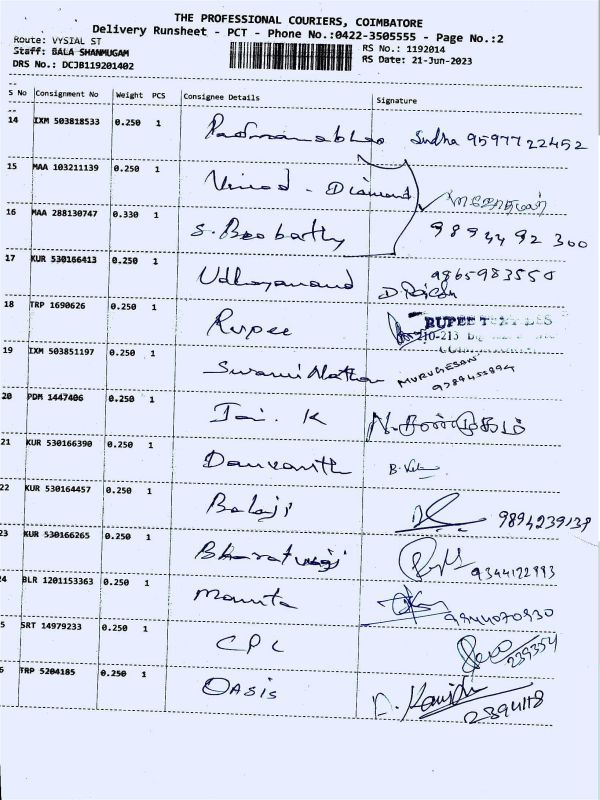 THE PROFESSIONAL COURIERS, COIMBATORE
Delivery Runsheet - PCT - Phone No.:0422-3505555 - Page No.:2
Route: VYSIAL ST
RS No.: 1192014
Staff: BALA SHANMUGAM
RS Date: 21-Jun-2023
DRS No.: DCJB119201402
S No Consignment No Weight PCS Consignee Details Signature
14 IXM 503818533 0.250 1 Padmanabhao Sudha 9597722452
15 MAA 103211139 0.250 1 Vinod - Diamond
16 MAA 288130747 0.330 1 S. 9894492300
17 KUR 530166413 0.250 1 Udhayanand 9865983550
18 TRP 1690626 0.250 1 Rupee RUPEE
19 IXM 503851197 0.250 1 Swami Nathan MURUGESAN
20 PDM 1447406 0.250 1 Jai. K N. சண்முகம்
21 KUR 530166390 0.250 1 Danvanth B.
22 KUR 530164457 0.250 1 Balaji 9894239138
23 KUR 530166265 0.250 1 9344122993
24 BLR 1201153363 0.250 1 Mamta 9944070930
5 SRT 14979233 0.250 1 CPC 239354
6 TRP 5204185 0.250 1 OASIS 2394118